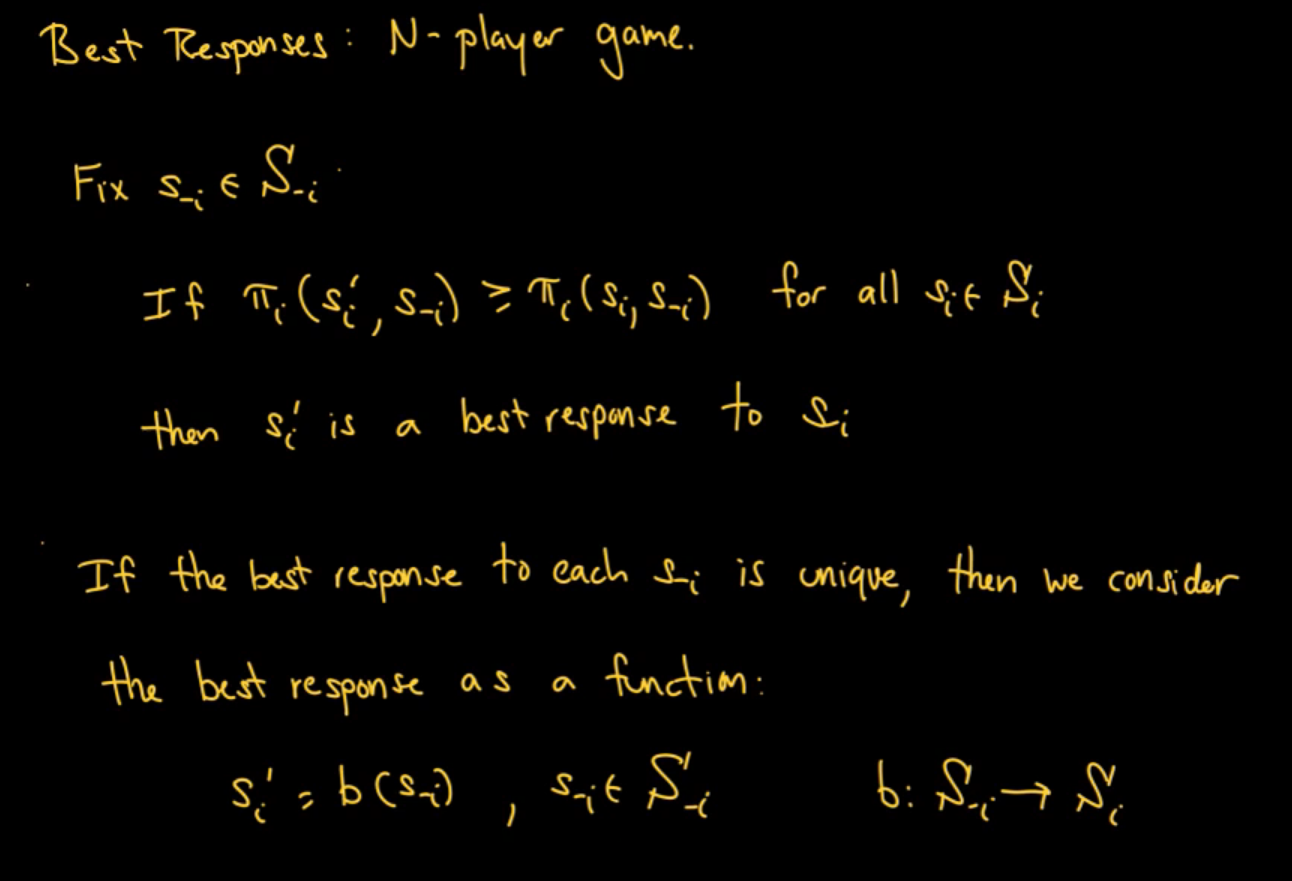 Best Responses: N-player game.
Fix s₋ᵢ ∈ S₋ᵢ
If πᵢ(sᵢ′, s₋ᵢ) ≥ πᵢ(sᵢ, s₋ᵢ) for all sᵢ ∈ Sᵢ
then sᵢ′ is a best response to sᵢ
If the best response to each s₋ᵢ is unique, then we consider
the best response as a function:
sᵢ′ = b(s₋ᵢ), s₋ᵢ ∈ S₋ᵢ b: S₋ᵢ → Sᵢ